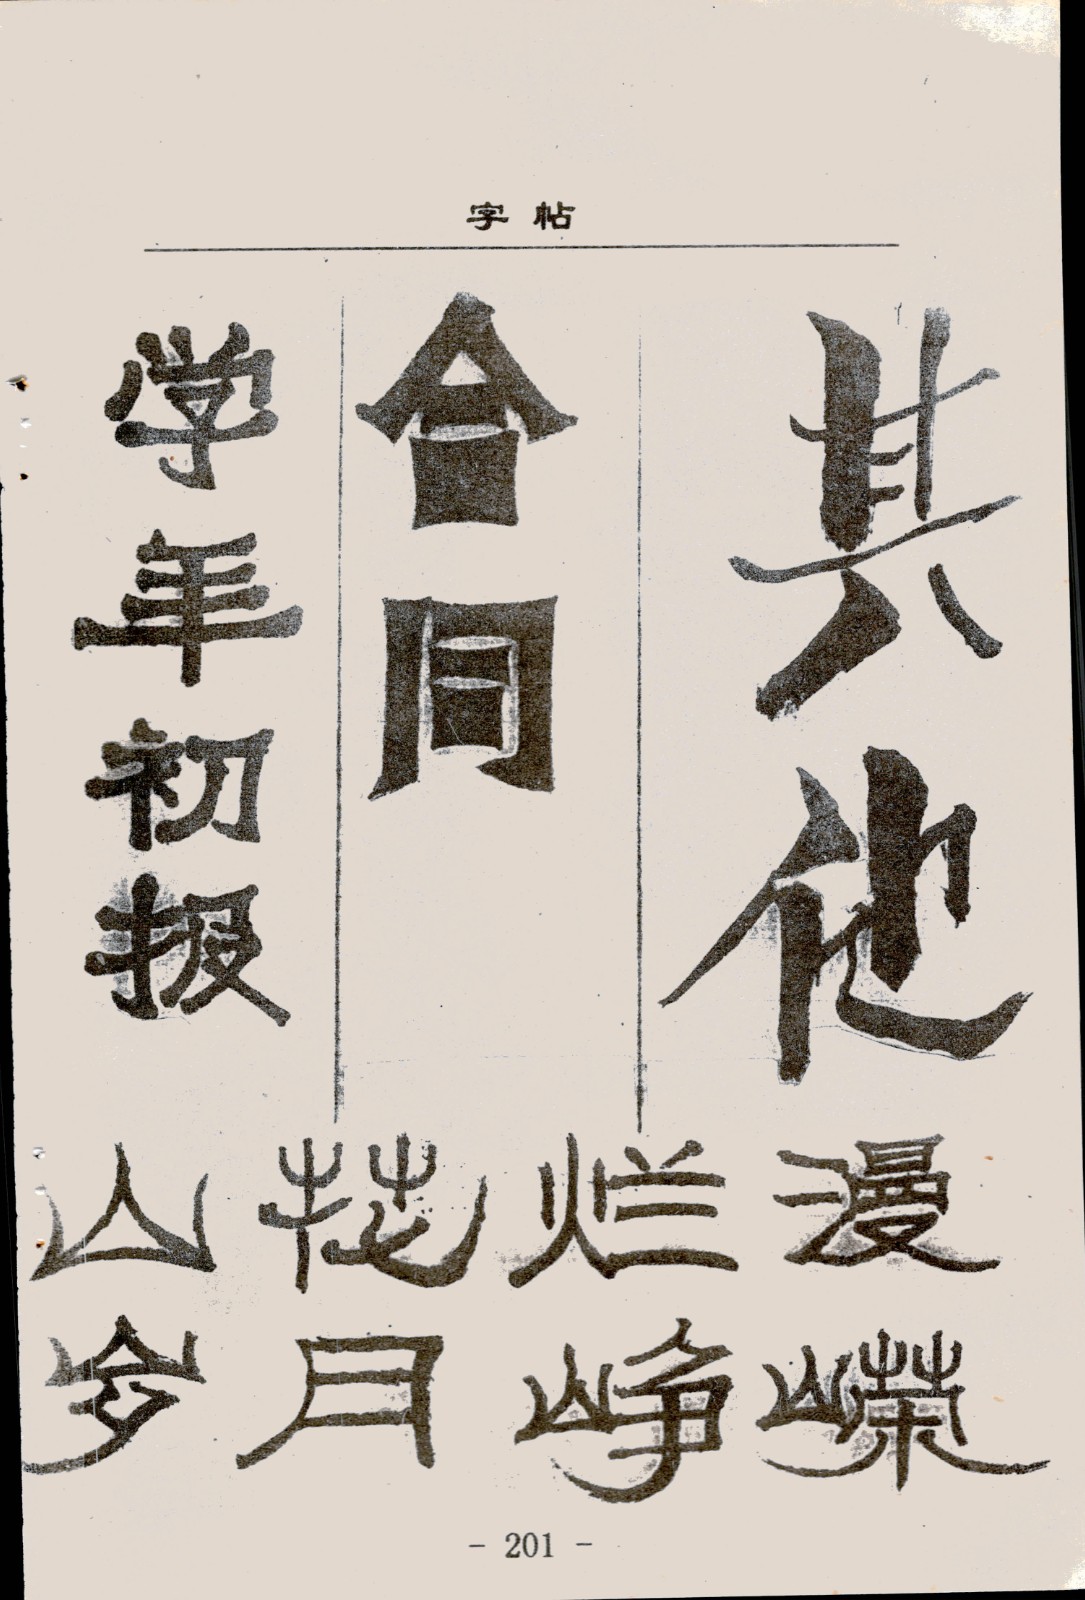 字帖
其他
合同
学年初报
山花烂漫
岁月峥嵘
- 201 -